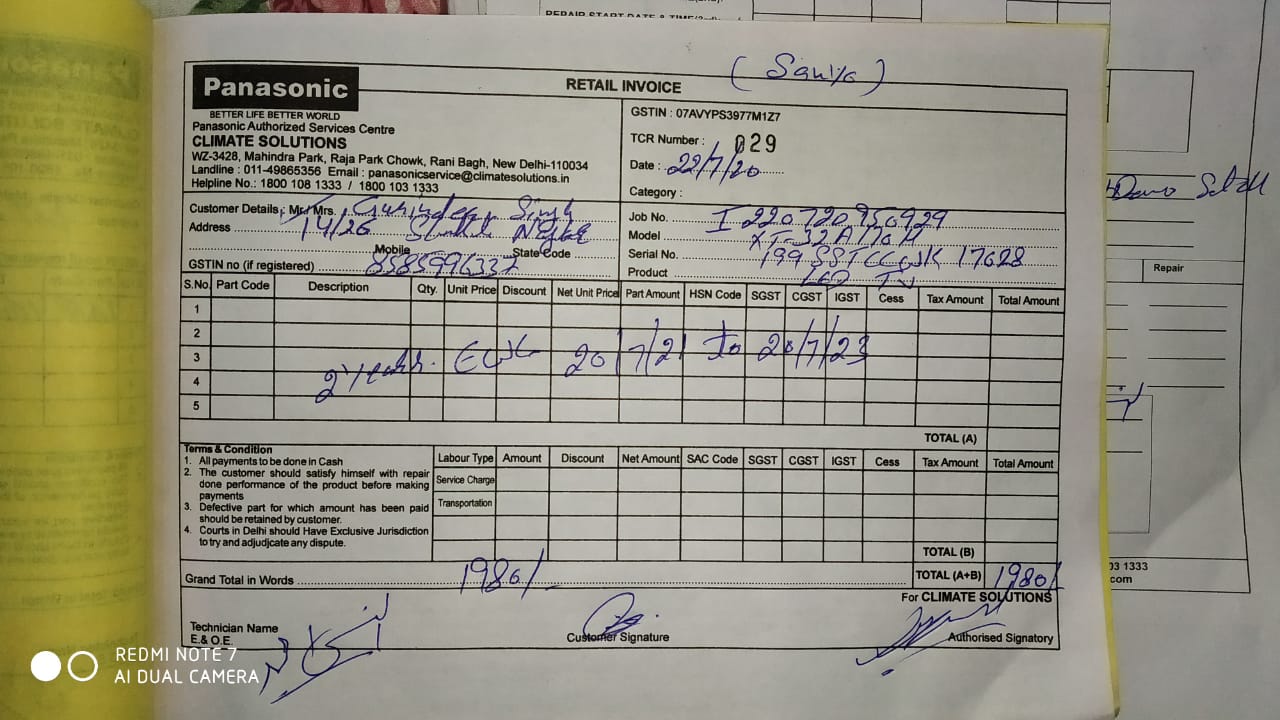 REPAIR START DATE & TIME
(Saniya)
Panasonic
RETAIL INVOICE
BETTER LIFE BETTER WORLD
Panasonic Authorized Services Centre
CLIMATE SOLUTIONS
WZ-3428, Mahindra Park, Raja Park Chowk, Rani Bagh, New Delhi-110034
Landline : 011-49865356 Email : panasonicservice@climatesolutions.in
Helpline No.: 1800 108 1333 / 1800 103 1333
GSTIN : 07AVYPS3977M1Z7
TCR Number : 029
Date : 22/7/20
Category :
Customer Details : Mr./Mrs. Gurindeep Singh
Address 14/26
Mobile State Code
GSTIN no (if registered) 8585996337
Job No. I220720950929
Model
Serial No. 17028
Product LED TV
S.No. Part Code Description Qty. Unit Price Discount Net Unit Price Part Amount HSN Code SGST CGST IGST Cess Tax Amount Total Amount
1
2
3
4
5
2 years. 20/7/21 to 20/7/23
TOTAL (A)
Terms & Condition
1. All payments to be done in Cash
2. The customer should satisfy himself with repair
done performance of the product before making
payments
3. Defective part for which amount has been paid
should be retained by customer.
4. Courts in Delhi should Have Exclusive Jurisdiction
to try and adjudjcate any dispute.
Labour Type Amount Discount Net Amount SAC Code SGST CGST IGST Cess Tax Amount Total Amount
Service Charge
Transportation
TOTAL (B)
Grand Total in Words 1980/-
TOTAL (A+B) 1980/-
For CLIMATE SOLUTIONS
Technician Name
E.& O.E.
Customer Signature
Authorised Signatory
Repair
03 1333
.com
REDMI NOTE 7
AI DUAL CAMERA